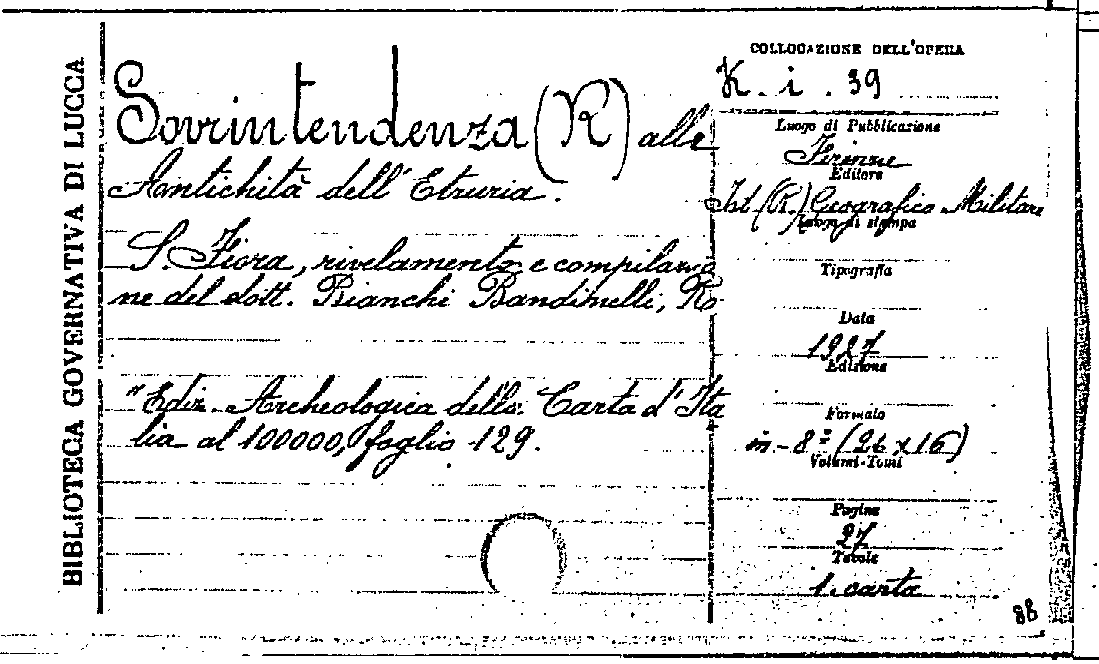 BIBLIOTECA GOVERNATIVA DI LUCCA
Sovrintendenza (R) alle
Antichità dell'Etruria.
S. Fiora, rivelamento e compilazio
ne del dott. Bianchi Bandinelli, R
"Ediz. Archeologica della Carta d'Ita
lia al 100000, foglio 129.
COLLOCAZIONE DELL'OPERA
K. i. 39
Luogo di Pubblicazione
Firenze
Editore
Ist. (R.) Geografico Militare
Luogo di stampa
Tipografia
Data
1927
Edizione
Formato
in-8º (26 x 16)
Volumi-Tomi
Pagine
27
Tavole
1. carta
88